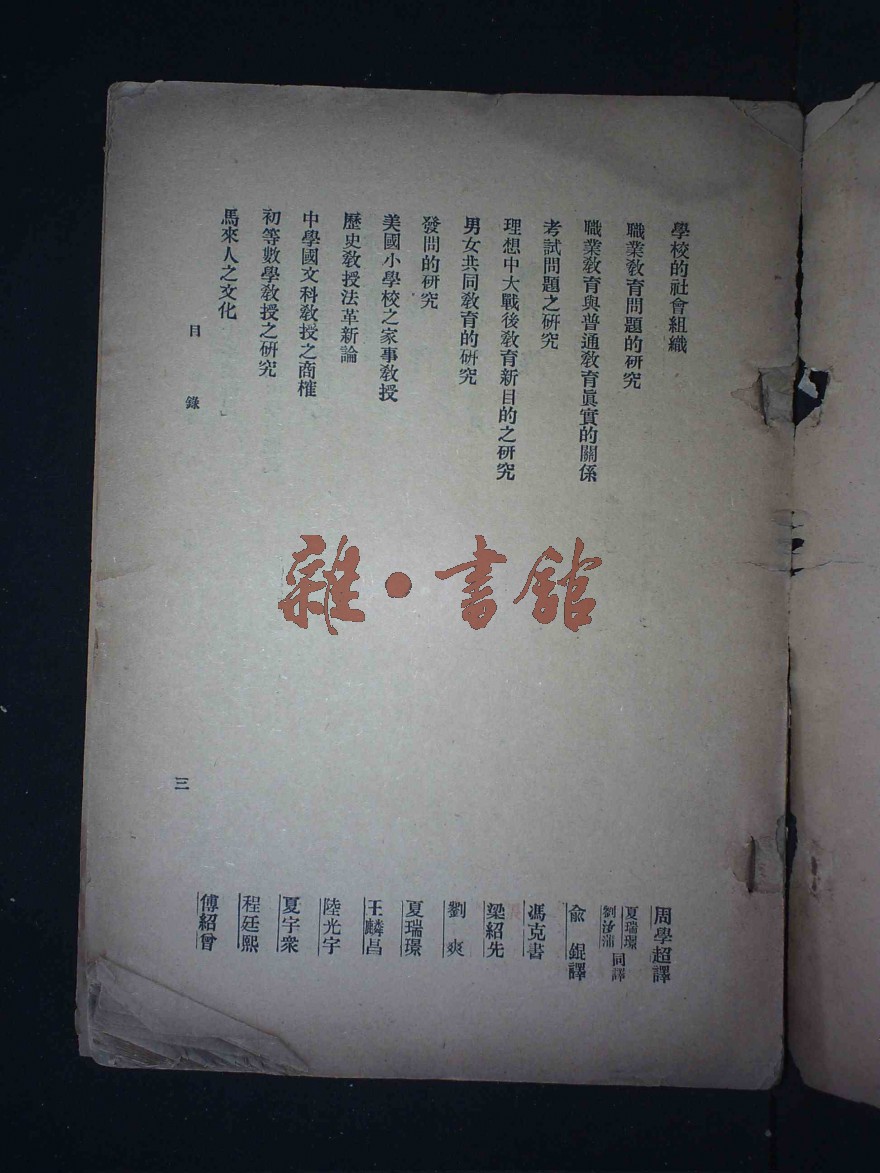 學校的社會組織
周學超譯
職業教育問題的研究
夏瑞璟
劉汝蒲
同譯
職業教育與普通教育眞實的關係
兪錕譯
考試問題之研究
馮克書
理想中大戰後教育新目的之研究
梁紹先
男女共同教育的研究
劉爽
發問的研究
夏瑞璟
美國小學校之家事教授
王麟昌
歷史教授法革新論
陸光宇
中學國文科教授之商榷
夏宇衆
初等數學教授之研究
程廷熙
馬來人之文化
傅紹曾
目錄
三
雜·書館